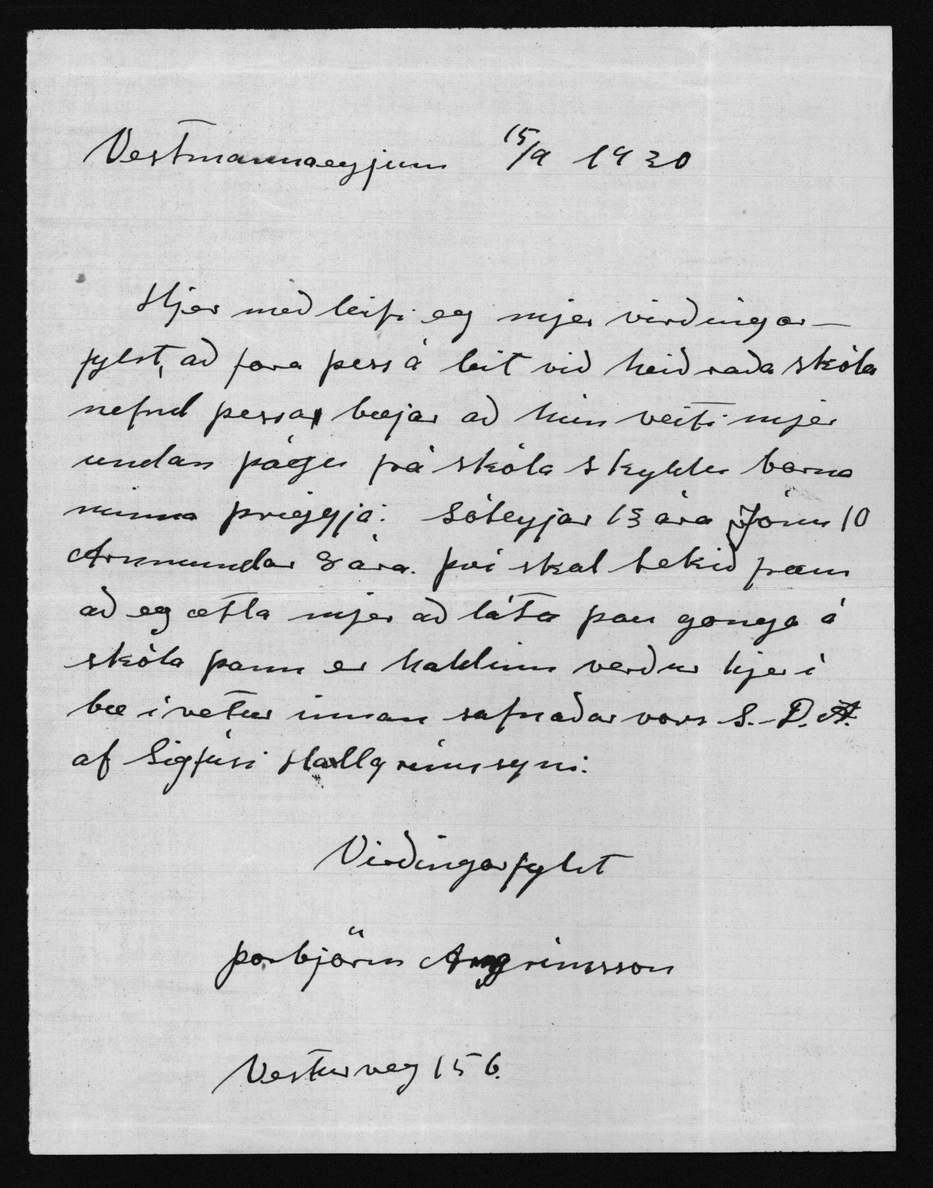 Vestmannaeyjum 15/9 1930
Hjer með leifi eg mjer virðingar-
fylst, að fara þess á leit við heiðraða skóla
nefnd þessar bæjar að hún veiti mjer
undan þágu frá skóla skyldu barna
minna þriggja: Sóleyjar 13 ára Jónu 10
Arnmundar 8 ára. því skal tekið fram
að eg ætla mjer að láta þau ganga á
skóla þann er haldinn verður hjer í
bæ í vetur innan safnaðar vors S.-D.A.
af Sigfúsi Hallgrímssyni.
Virðingarfylst
þorbjörn Arngrímsson
Vesturveg 15 b.